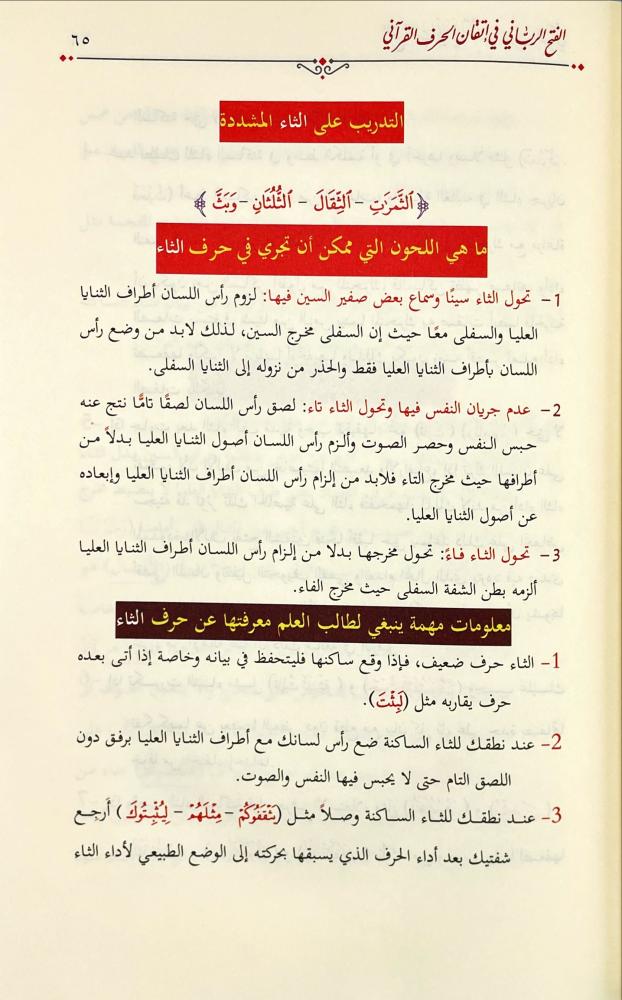 الفتح الرباني في إتقان الحرف القرآني
٦٥
التدريب على الثاء المشددة
﴿ٱلثَّمَرَٰتِ - ٱلثِّقَالَ - ٱلثُّلُثَانِ - وَبَثَّ﴾
ما هي اللحون التي ممكن أن تجري في حرف الثاء
1- تحول الثاء سينًا وسماع بعض صفير السين فيها: لزوم رأس اللسان أطراف الثنايا
العليا والسفلى معًا حيث إن السفلى مخرج السين، لذلك لابد من وضع رأس
اللسان بأطراف الثنايا العليا فقط والحذر من نزوله إلى الثنايا السفلى.
2- عدم جريان النفس فيها وتحول الثاء تاء: لصق رأس اللسان لصقًا تامًّا نتج عنه
حبس النفس وحصر الصوت وألزم رأس اللسان أصول الثنايا العليا بدلاً من
أطرافها حيث مخرج التاء فلابد من إلزام رأس اللسان أطراف الثنايا العليا وإبعاده
عن أصول الثنايا العليا.
3- تحول الثاء فاءً: تحول مخرجها بدلا من إلزام رأس اللسان أطراف الثنايا العليا
ألزمه بطن الشفة السفلى حيث مخرج الفاء.
معلومات مهمة ينبغي لطالب العلم معرفتها عن حرف الثاء
1- الثاء حرف ضعيف، فإذا وقع ساكنها فليتحفظ في بيانه وخاصة إذا أتى بعده
حرف يقاربه مثل (لَبِثْتَ).
2- عند نطقك للثاء الساكنة ضع رأس لسانك مع أطراف الثنايا العليا برفق دون
اللصق التام حتى لا يحبس فيها النفس والصوت.
3- عند نطقك للثاء الساكنة وصلاً مثل (يَثْقَفُوكُمْ - مِثْلَهُمْ - لِيُثْبِتُوكَ) أرجع
شفتيك بعد أداء الحرف الذي يسبقها بحركته إلى الوضع الطبيعي لأداء الثاء